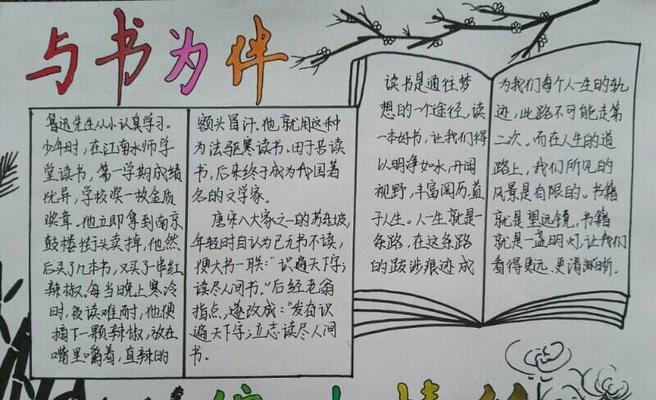 与书为伴
鲁迅先生从小认真学习。
少年时，在江南水师学
堂读书，第一学期成绩
优异，学校奖一枚金质
奖章。他立即拿到南京
鼓楼街头卖掉，他然
后买了几本书，又买了一串红
辣椒。每当晚上寒冷
时，夜读难耐，他便
摘下一颗辣椒，放在
嘴里嚼着，直辣的
额头冒汗。他就用这种
方法驱寒读书。由于苦读
书，后来终于成为我国著
名的文学家。
唐宋八大家之一的苏东坡，
年轻时自认为已无书不读，
便大书一联："识遍天下字；
读尽人间书。"后经老翁
指点，遂改成："发奋识
遍天下字；立志读尽人间
书。
读书是通往梦
想的一个途径，读
一本好书，让我们得
以明净如水，开阔
视野，丰富阅历，益
于人生。人一生就是一
条路，在这条路
的跋涉痕迹成
为我们每个人一生的轨
迹，此路不可能走第
二次。而在人生的道
路上，我们所见的
风景是有限的。书籍
就是望远镜，书籍
就是一盏明灯，让我们
看得更远、更清晰。